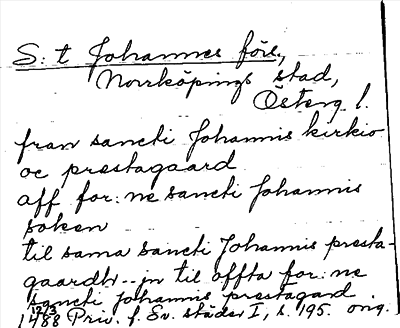 S:t Johannes förs.,
Norrköpings stad,
Österg. l.
fran sancti Johannis kirkio
oc prestagaard
aff for:ne sancti Johannis
soken
til sama sancti Johannis presta-
gaardh - - jn til offta for:ne
sancti Johannis prestagard
12/3
1488 Priv. f. Sv. städer I, s. 195. orig.